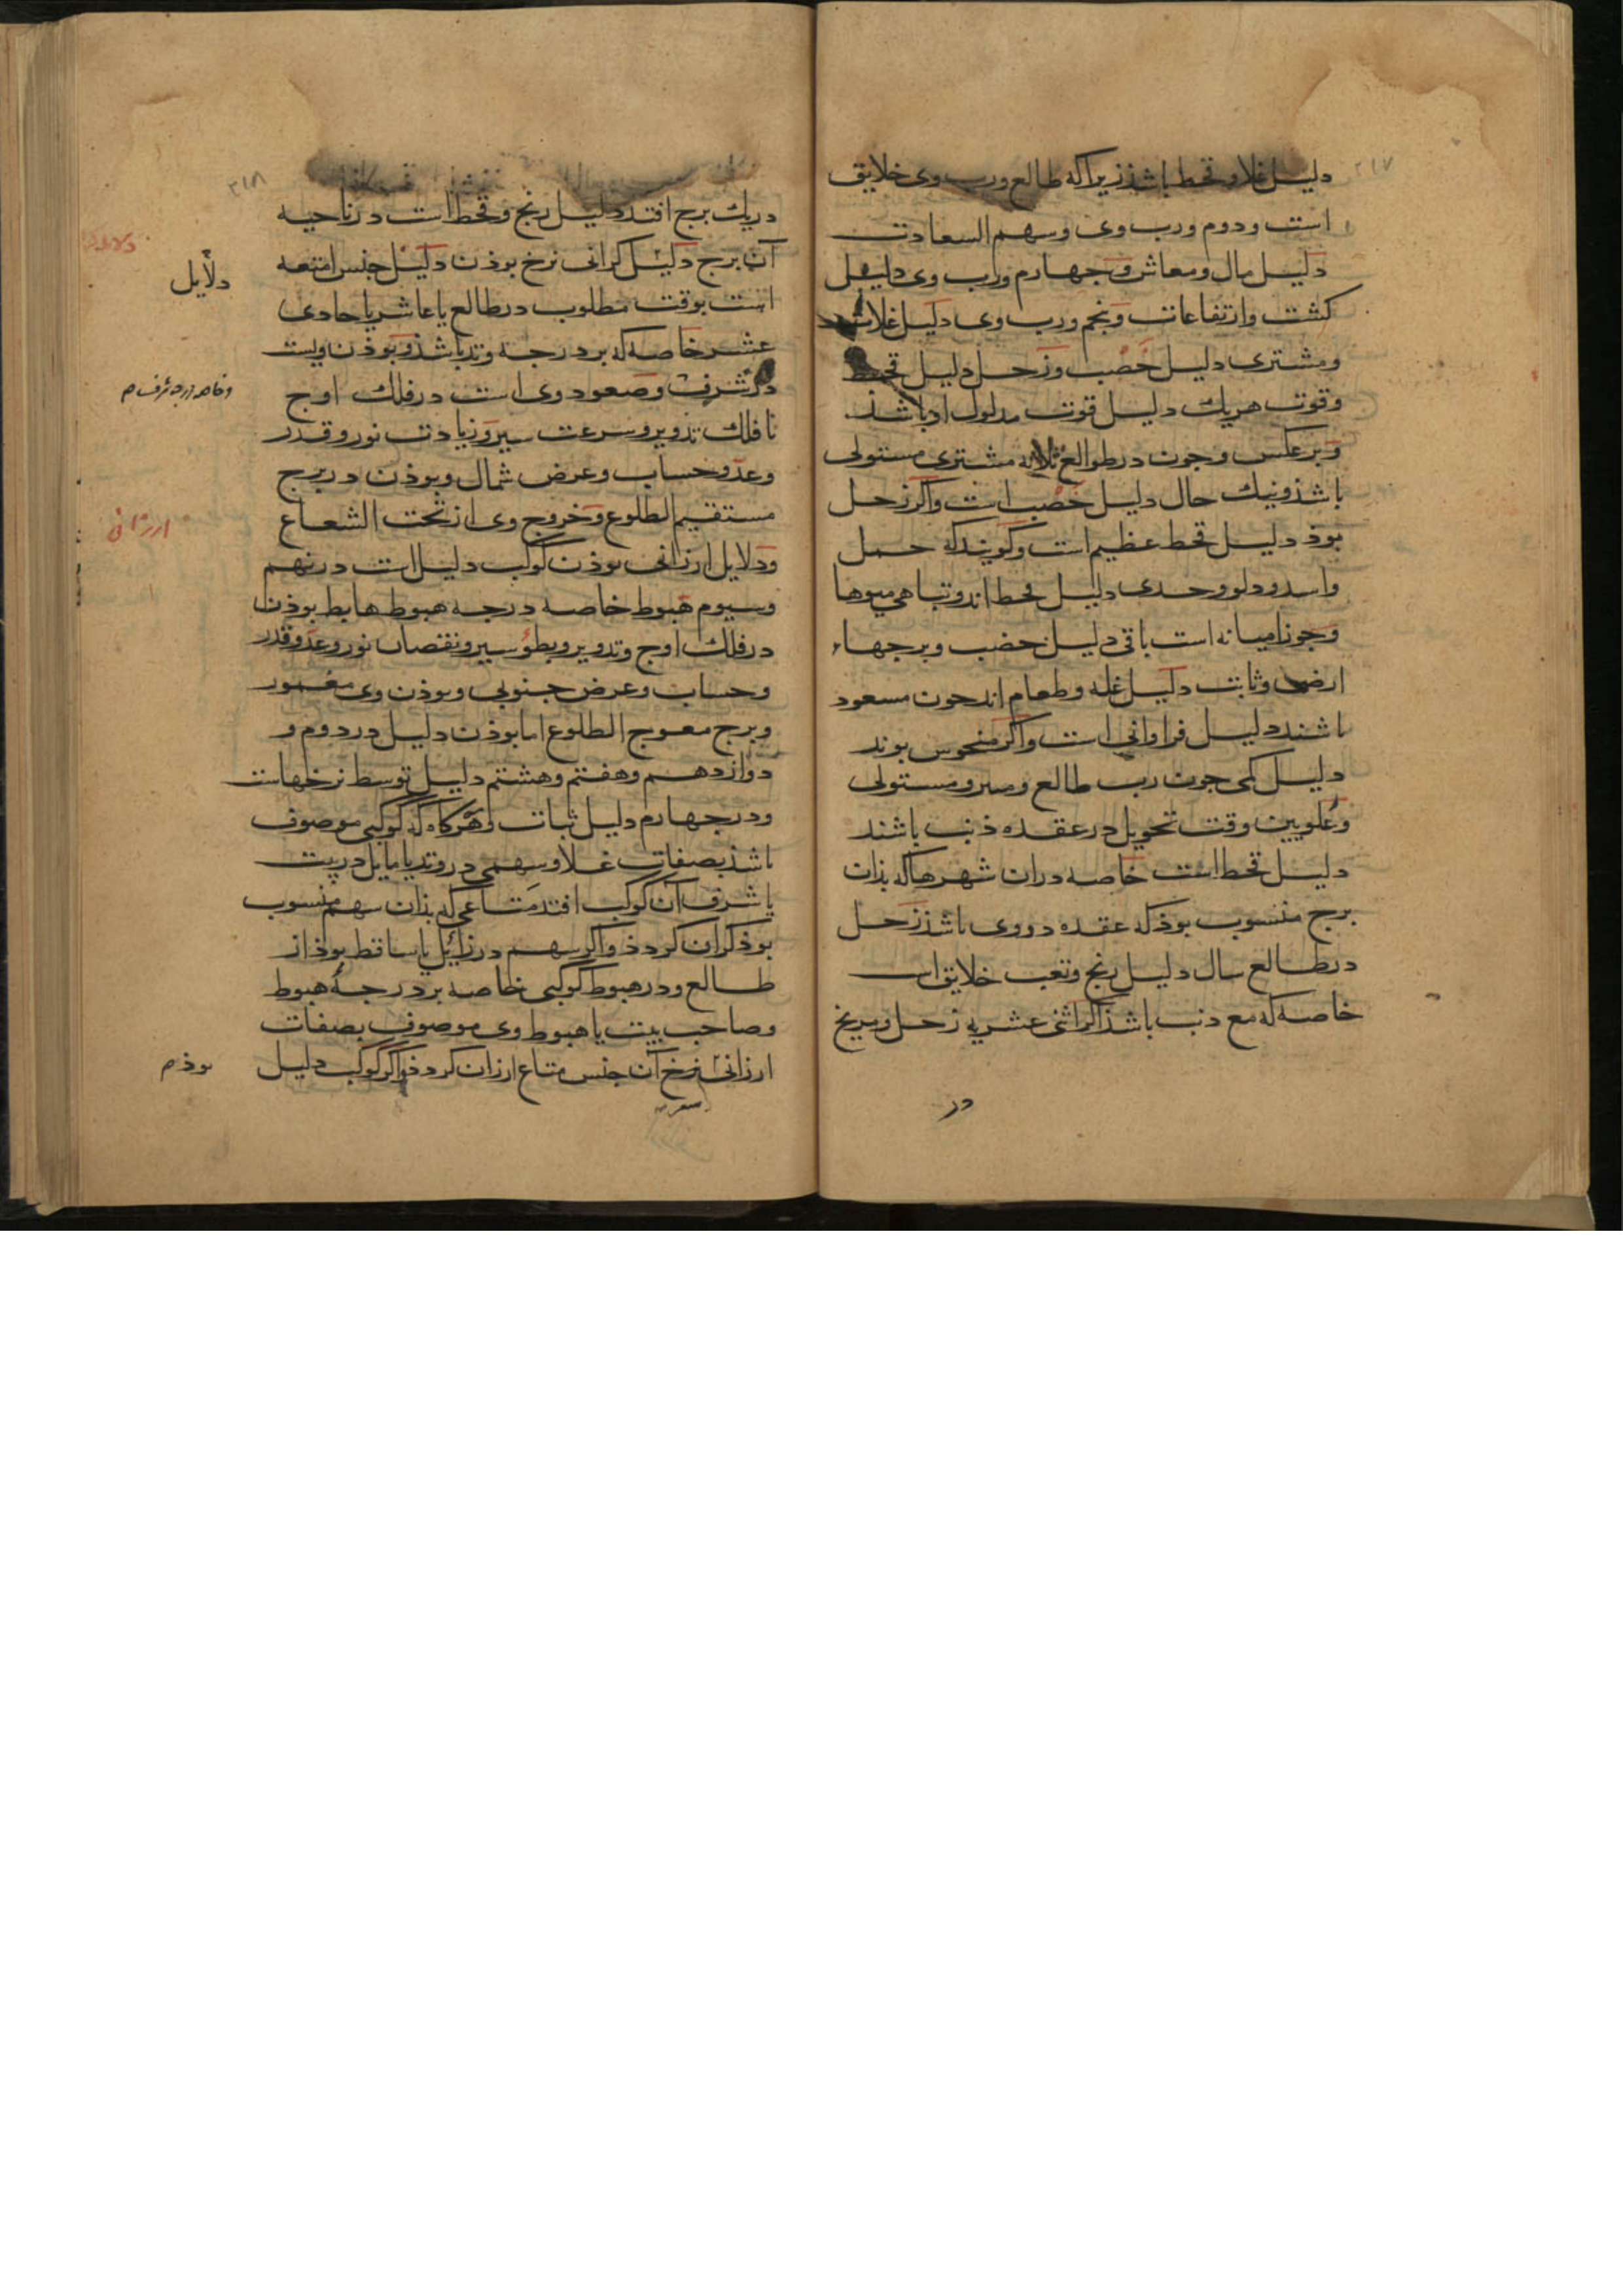 ۲۱۷
دلیل غلا و قحط باشذ زیرا که طالع ورب وی خلایق
است ودوم ورب وی وسهم السعادت
دلیل مال ومعاش وجهارم ورب وی دلیل
کشت وارتفاعات وپنجم ورب وی دلیل غلات
ومشتری دلیل خصب وزحل دلیل قحط
وقوت هریک دلیل قوت مدلول او باشذ
وبرعکس وجون در طوالع ثلاثه مشتری مستولی
باشذ ونیک حال دلیل خصب است واکر زحل
بوذ دلیل قحط عظیم است وکویند که حمل
واسد ودلو وجدی دلیل قحط اند وتباهی میوها
وجوزا میانه است باقی دلیل خصب وبرجهاء
ارضی وثابت دلیل غله وطعام اند جون مسعود
باشند دلیل فراوانی است واکر منحوس بوند
دلیل کمی جون رب طالع ومستولی
وعلویین وقت تحویل در عقده ذنب باشند
دلیل قحط است خاصه دران شهرها که بذان
برج منسوب بوذ که عقده در وی باشذ زحل
در طالع سال دلیل رنج وتعب خلایق است
خاصه که مع ذنب باشذ اکر اثنی عشریه زحل ومریخ
در
۲۱۸
دریک برج افتد دلیل رنج وقحط است در ناحیه
آن برج دلیل کرانی نرخ بوذن دلیل جنس امتعه
است بوقت مطلوب در طالع یا عاشر یا حادی
عشر خاصه که بر درجه وتد باشذ وبوذن
در شرف وصعود وی است در فلک اوج
تا فلک تدویر وسرعت سیر وزیادت نور وقدر
وعدد وحساب وعرض شمال وبوذن در برج
مستقیم الطلوع وخروج وی از تحت الشعاع
ودلایل ارزانی بوذن کوکب دلیل است در نهم
وسیوم هبوط خاصه درجه هبوط هابط بوذن
در فلک اوج وتدویر وبطؤ سیر ونقصان نور وعدد وقدر
وحساب وعرض جنوبی وبوذن وی
وبرج معوج الطلوع اما بوذن دلیل در دوم و
دوازدهم وهفتم وهشتم دلیل توسط نرخهاست
ودر جهارم دلیل ثبات وهرکاه که کوکبی موصوف
باشذ بصفات غلا وسهمی در وتد یا مایل در بیت
یا شرف آن کوکب افتد متاعی که بذان سهم منسوب
بوذ کران کردذ واکر سهم در زائل یا ساقط بوذ از
طالع ودر هبوط کوکبی خاصه بر درجهٔ هبوط
وصاحب بیت یا هبوط وی موصوف بصفات
ارزانی نرخ آن جنس متاع ارزان کردذ واکر کوکب دلیل
دلایل
وخاصه درجه شرف م
ارزانی
بوذ م